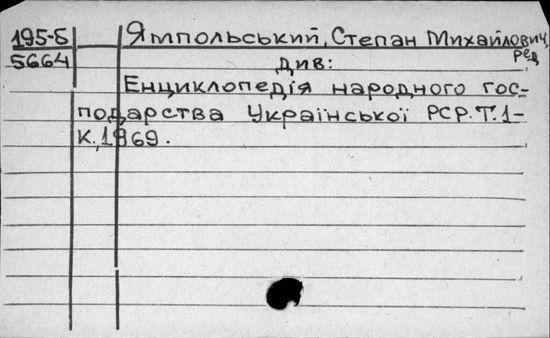 195-Б Ямпольський, Степан Михайлович,
ред
5664 див:
Енциклопедія народного гос-
подарства Української РСР. Т. 1-
К., 1969.